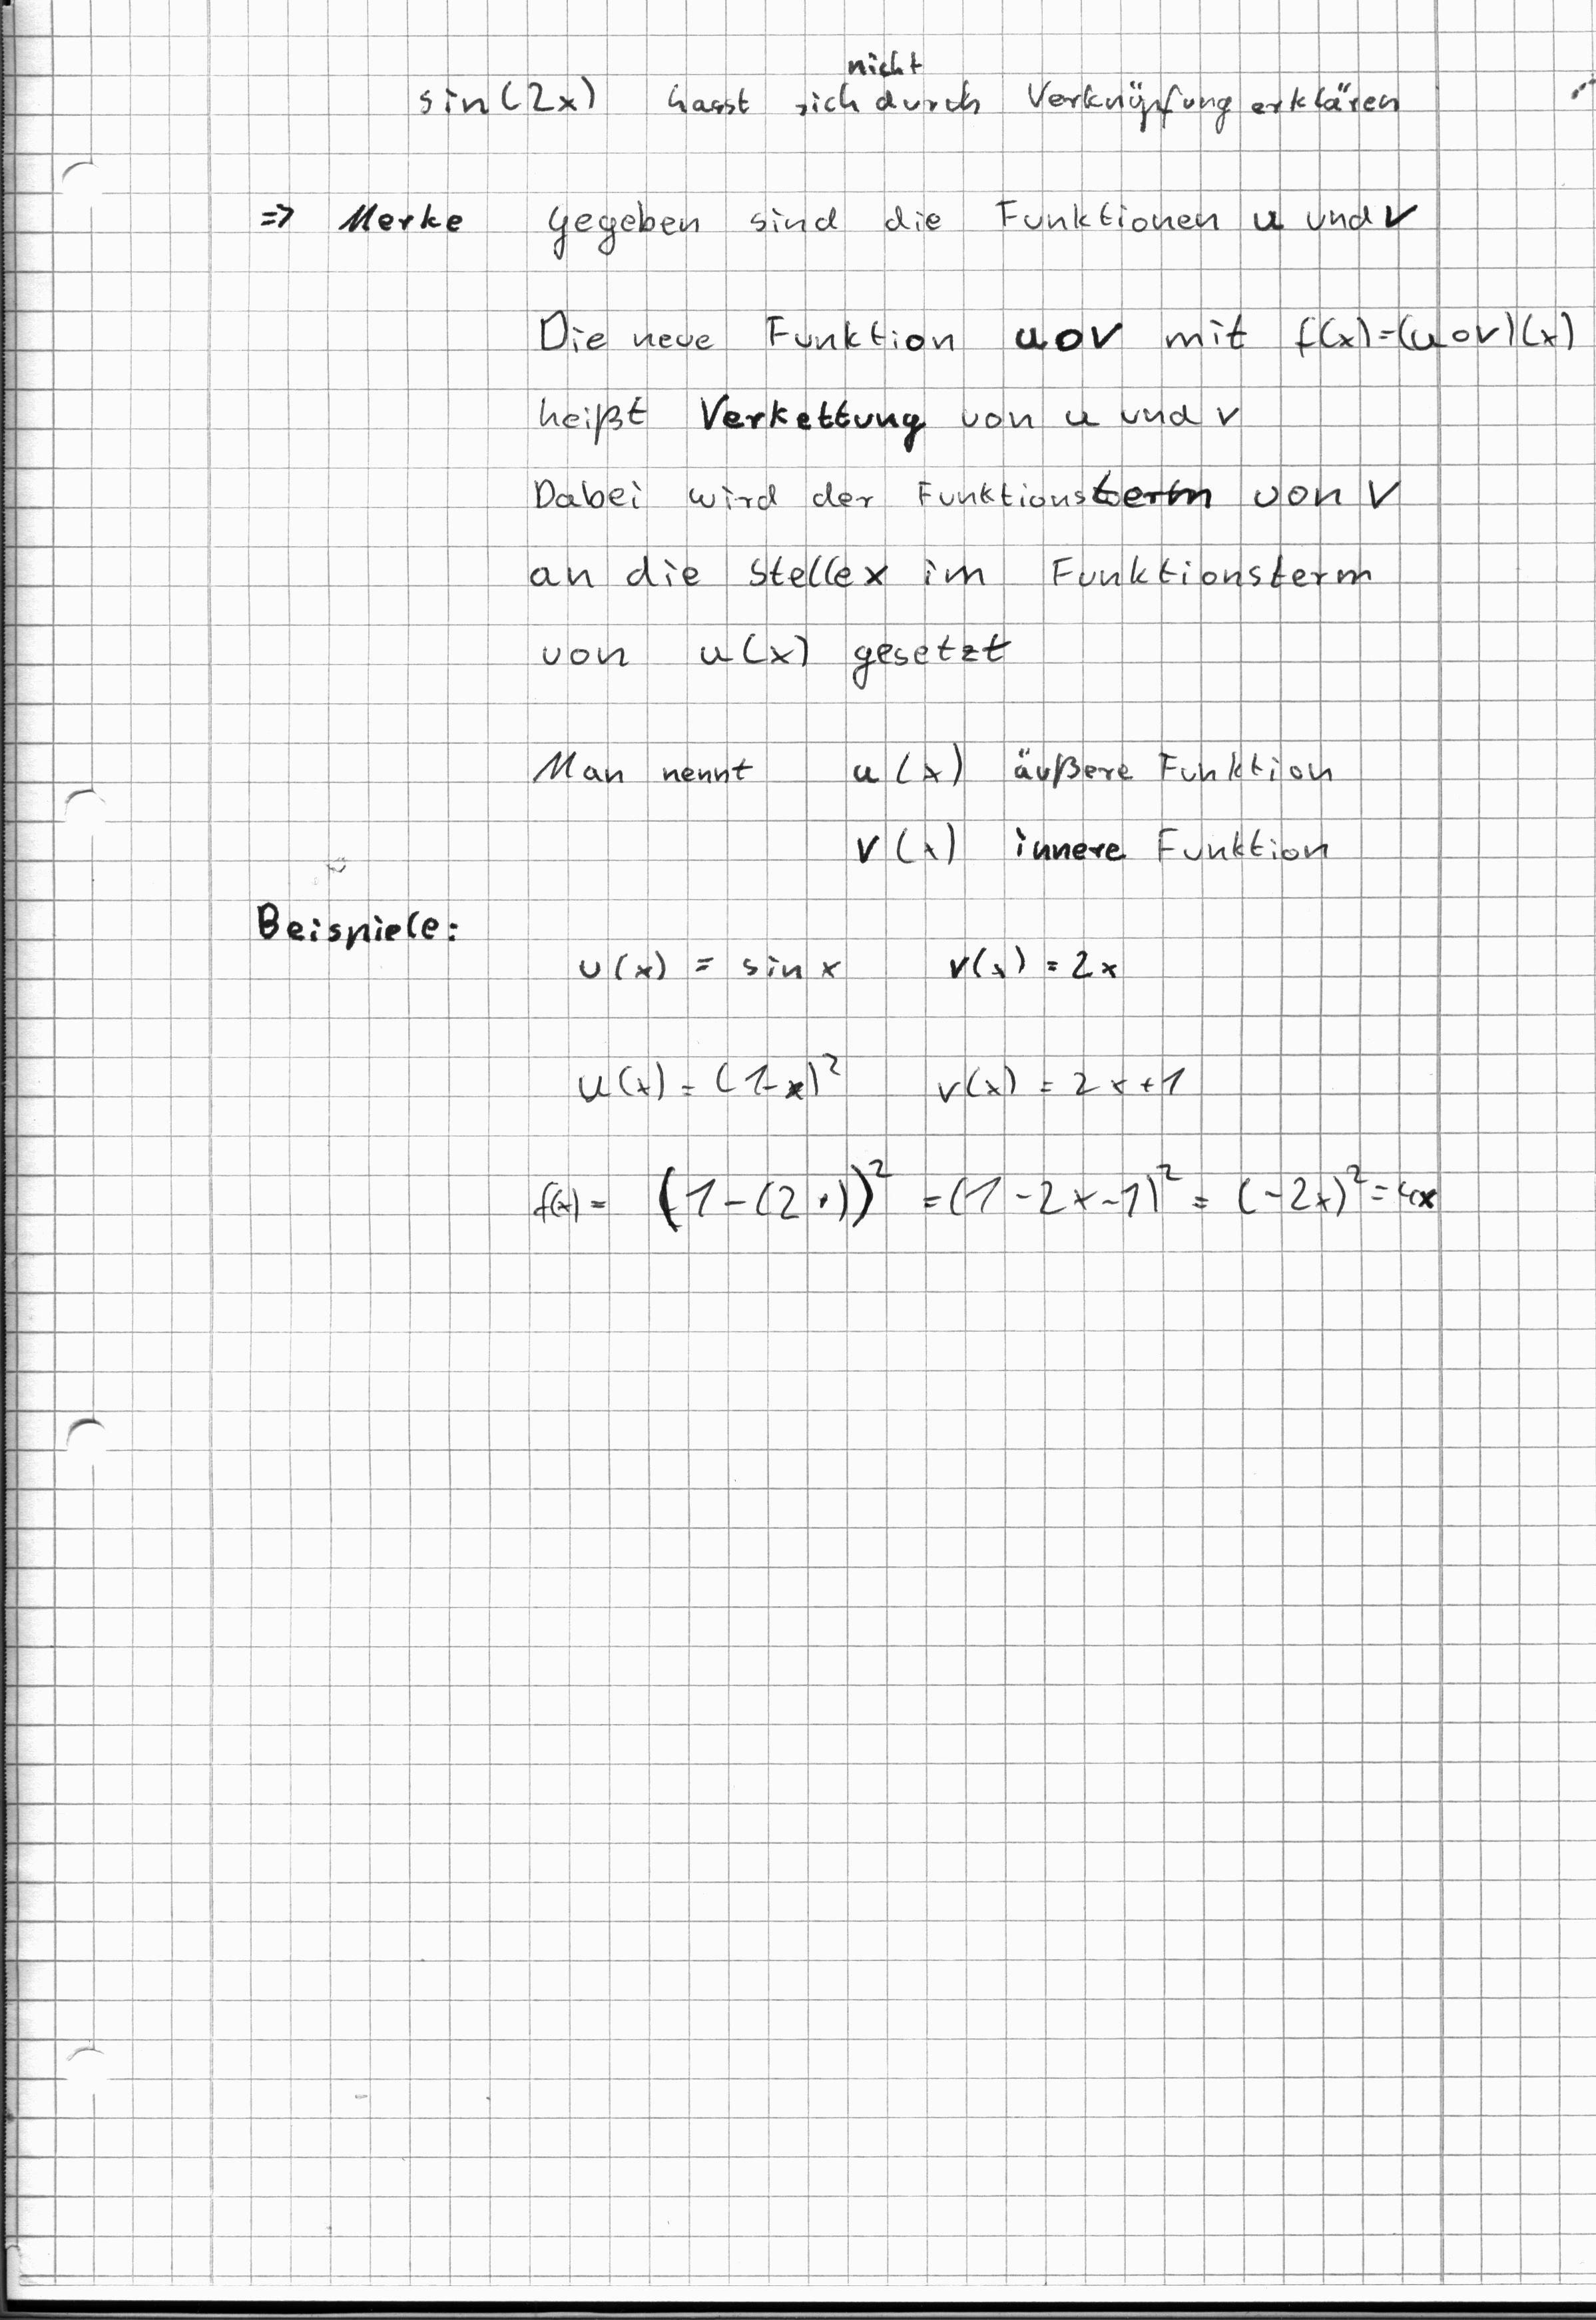 nicht
sin(2x) hasst sich durch Verknüpfung erklären
=> Merke gegeben sind die Funktionen u und v
Die neue Funktion u∘v mit f(x)=(u∘v)(x)
heißt Verkettung von u und v
Dabei wird der Funktionsterm von v
an die Stelle x im Funktionsterm
von u(x) gesetzt
Man nennt u(x) äußere Funktion
v(x) innere Funktion
Beispiele:
u(x) = sin x v(x) = 2x
u(x) = (1-x)² v(x) = 2x+1
f(x) = (1-(2 ))² = (1-2x-1)² = (-2x)² = 4x